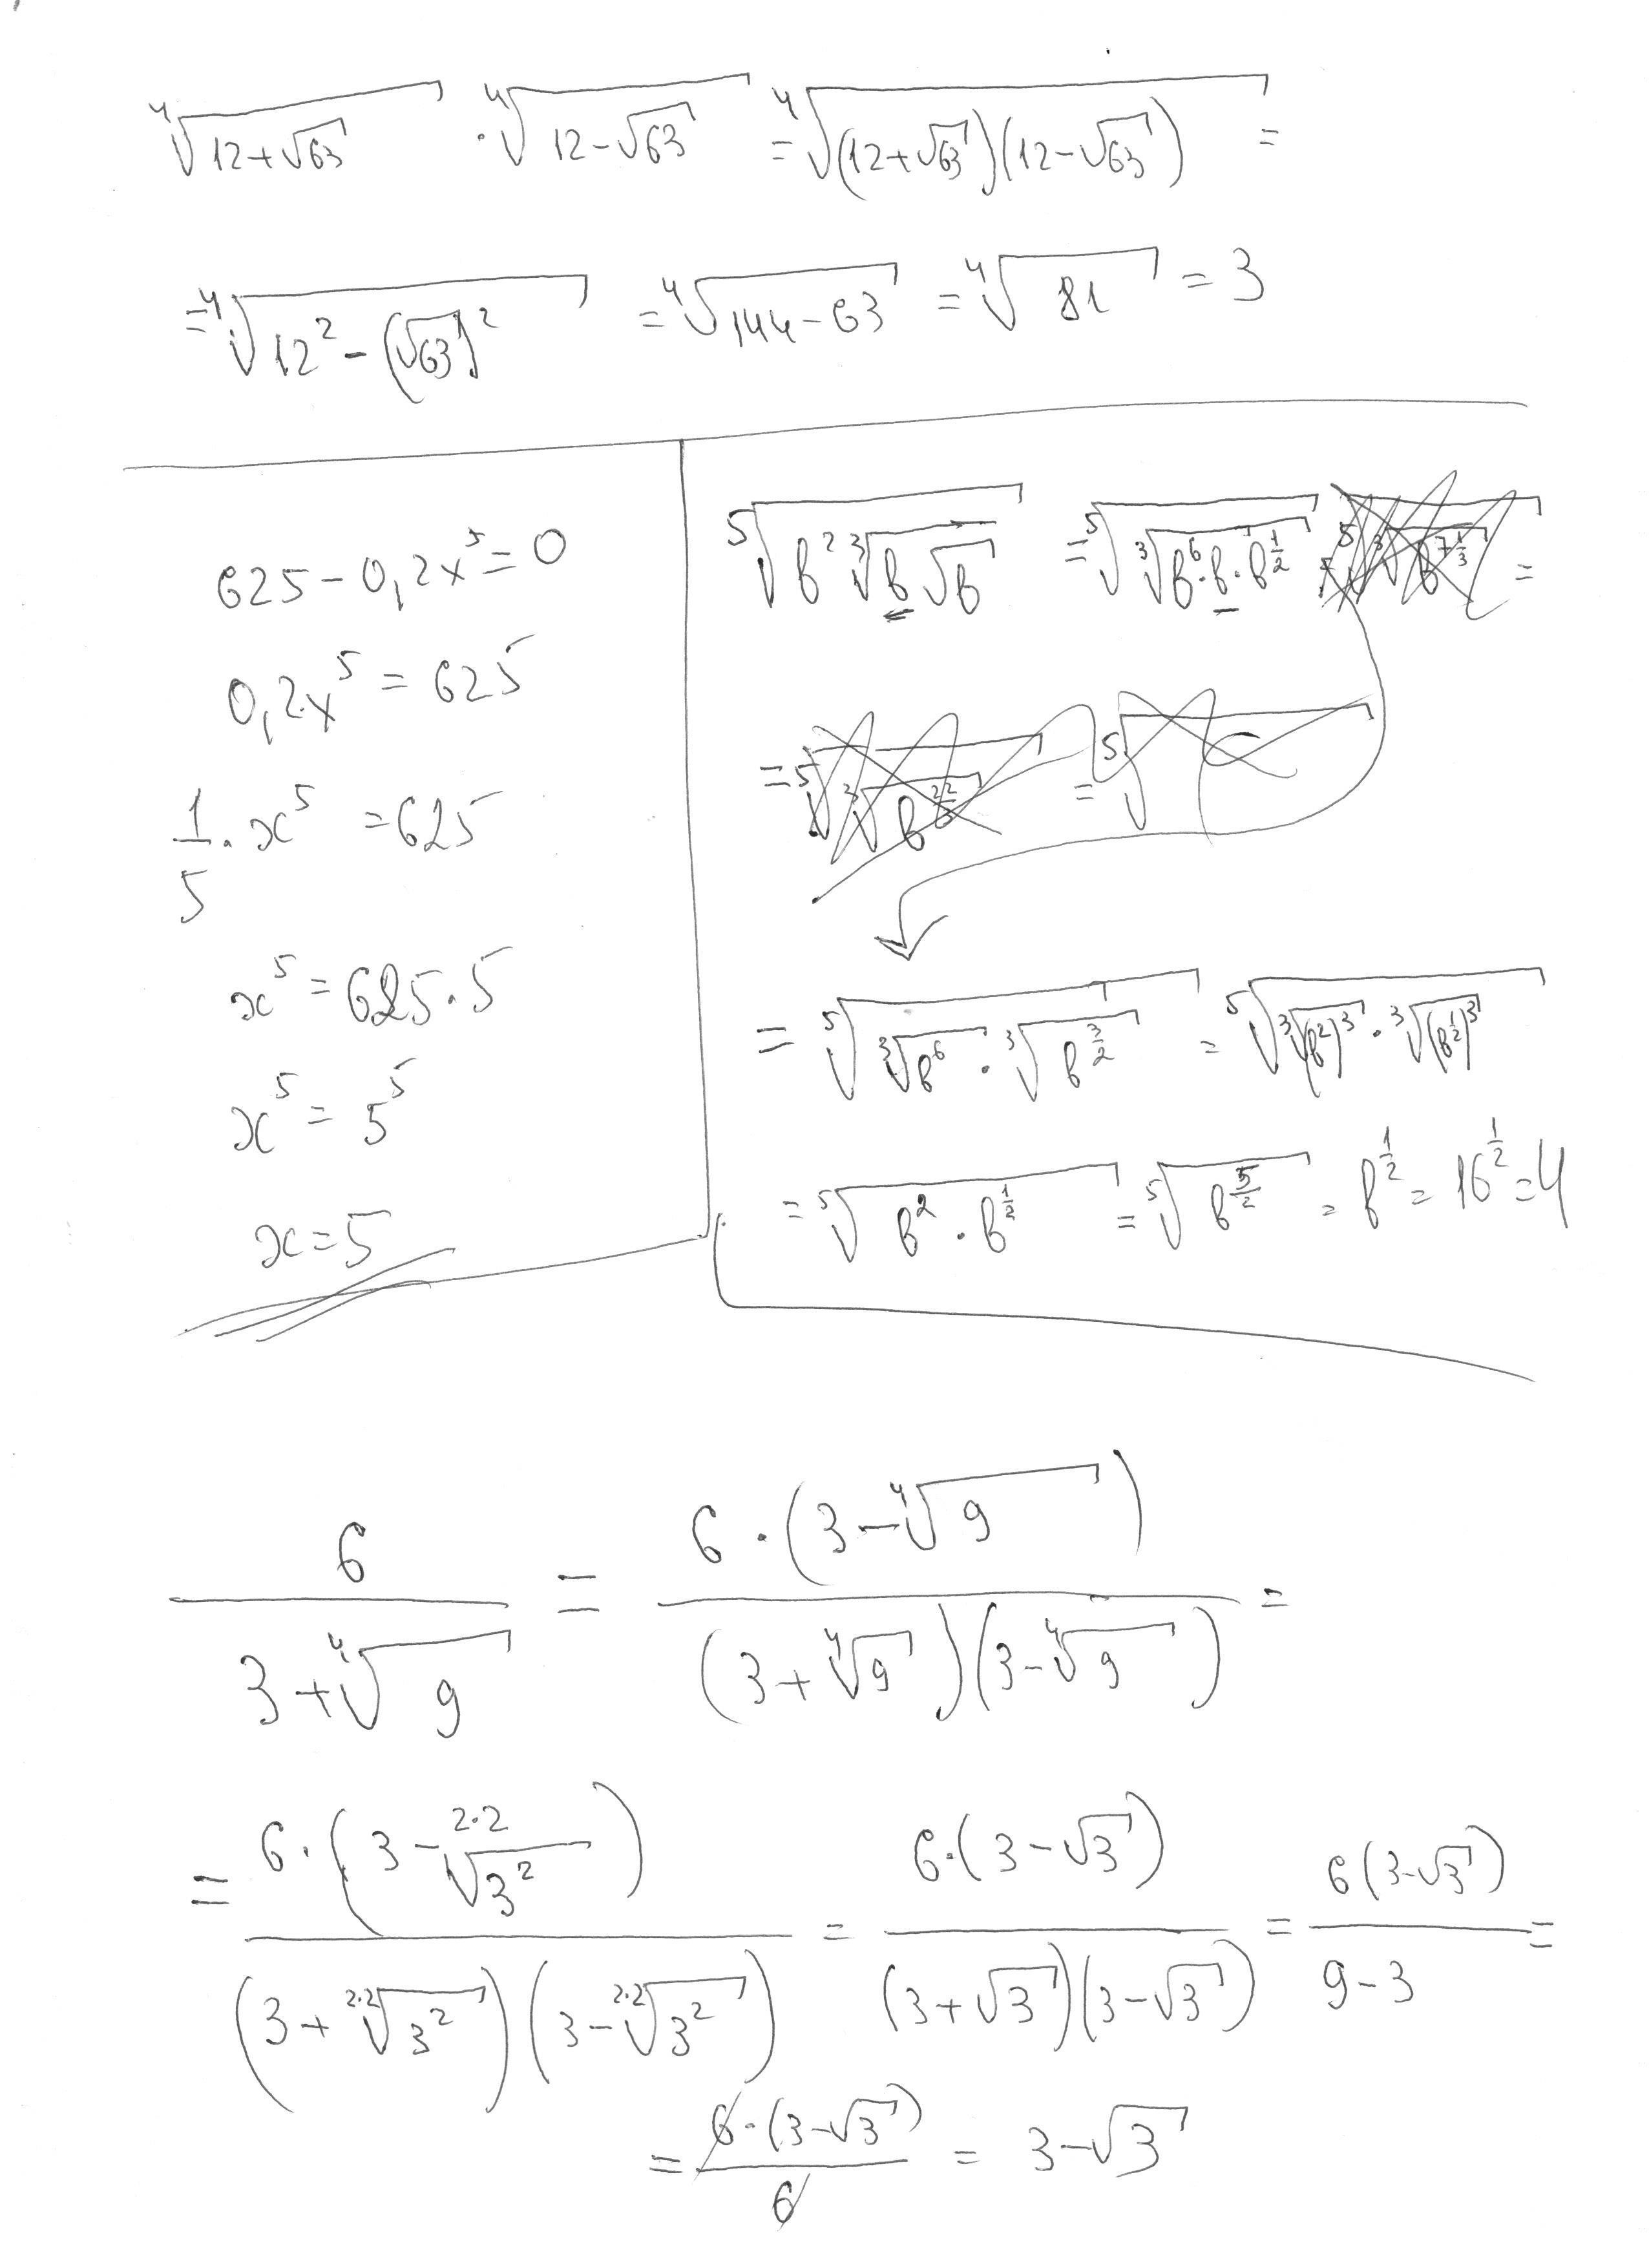 ⁴√(12+√63) · ⁴√(12-√63) = ⁴√((12+√63)(12-√63)) =
= ⁴√(12² - (√63)²) = ⁴√(144-63) = ⁴√81 = 3
625 - 0,2x⁵ = 0
0,2x⁵ = 625
1/5 · x⁵ = 625
x⁵ = 625·5
x⁵ = 5⁵
x = 5
⁵√(b² ³√(b √b)) = ⁵√(³√(b⁶·b·b^(1/2))) =
= ⁵√(³√(b⁶) · ³√(b^(3/2))) = ⁵√(³√((b²)³) · ³√((b^(1/2))³))
= ⁵√(b² · b^(1/2)) = ⁵√(b^(5/2)) = b^(1/2) = 16^(1/2) = 4
6/(3+⁴√9) = 6·(3-⁴√9)/((3+⁴√9)(3-⁴√9)) =
= 6·(3-²·²√(3²))/((3+²·²√(3²))(3-²·²√(3²))) = 6·(3-√3)/((3+√3)(3-√3)) = 6(3-√3)/(9-3) =
= 6·(3-√3)/6 = 3-√3